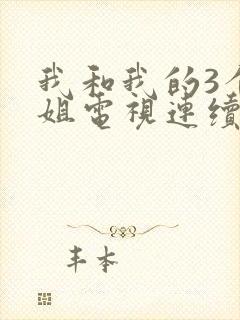 我和我的3
姐電視連續
丰本